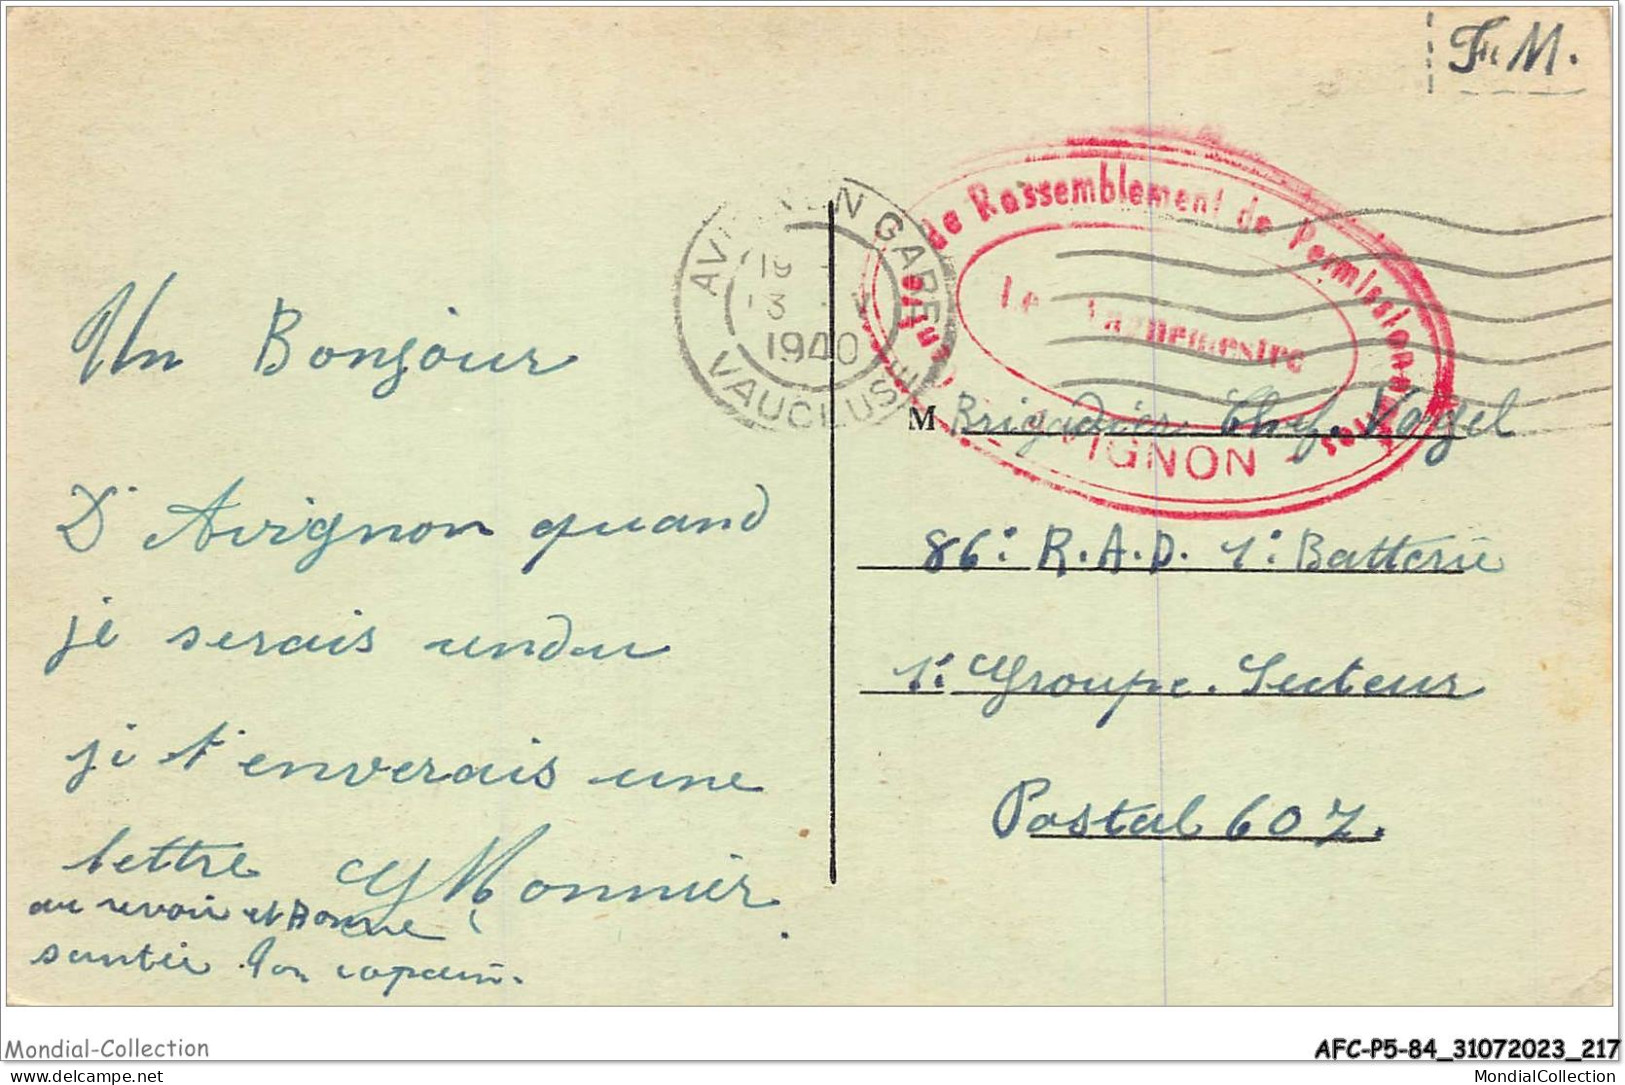 F.M.
AVIGNON GARE
19
13 V
1940
VAUCLUSE
de Rassemblement de Permissionnaires
Le Vaguemestre
AVIGNON
Un Bonjour
D'Avignon quand
je serais rendu
je t'enverais une
lettre Monnier
au revoir et Bonne
santée Ton copain.
M Brigadier Chef. Vogel
86e R.A.D. 1e Batterie
1e Groupe. Secteur
Postal 607.
Mondial-Collection
AFC-P5-84_31072023_217
www.delcampe.net
MondialCollection